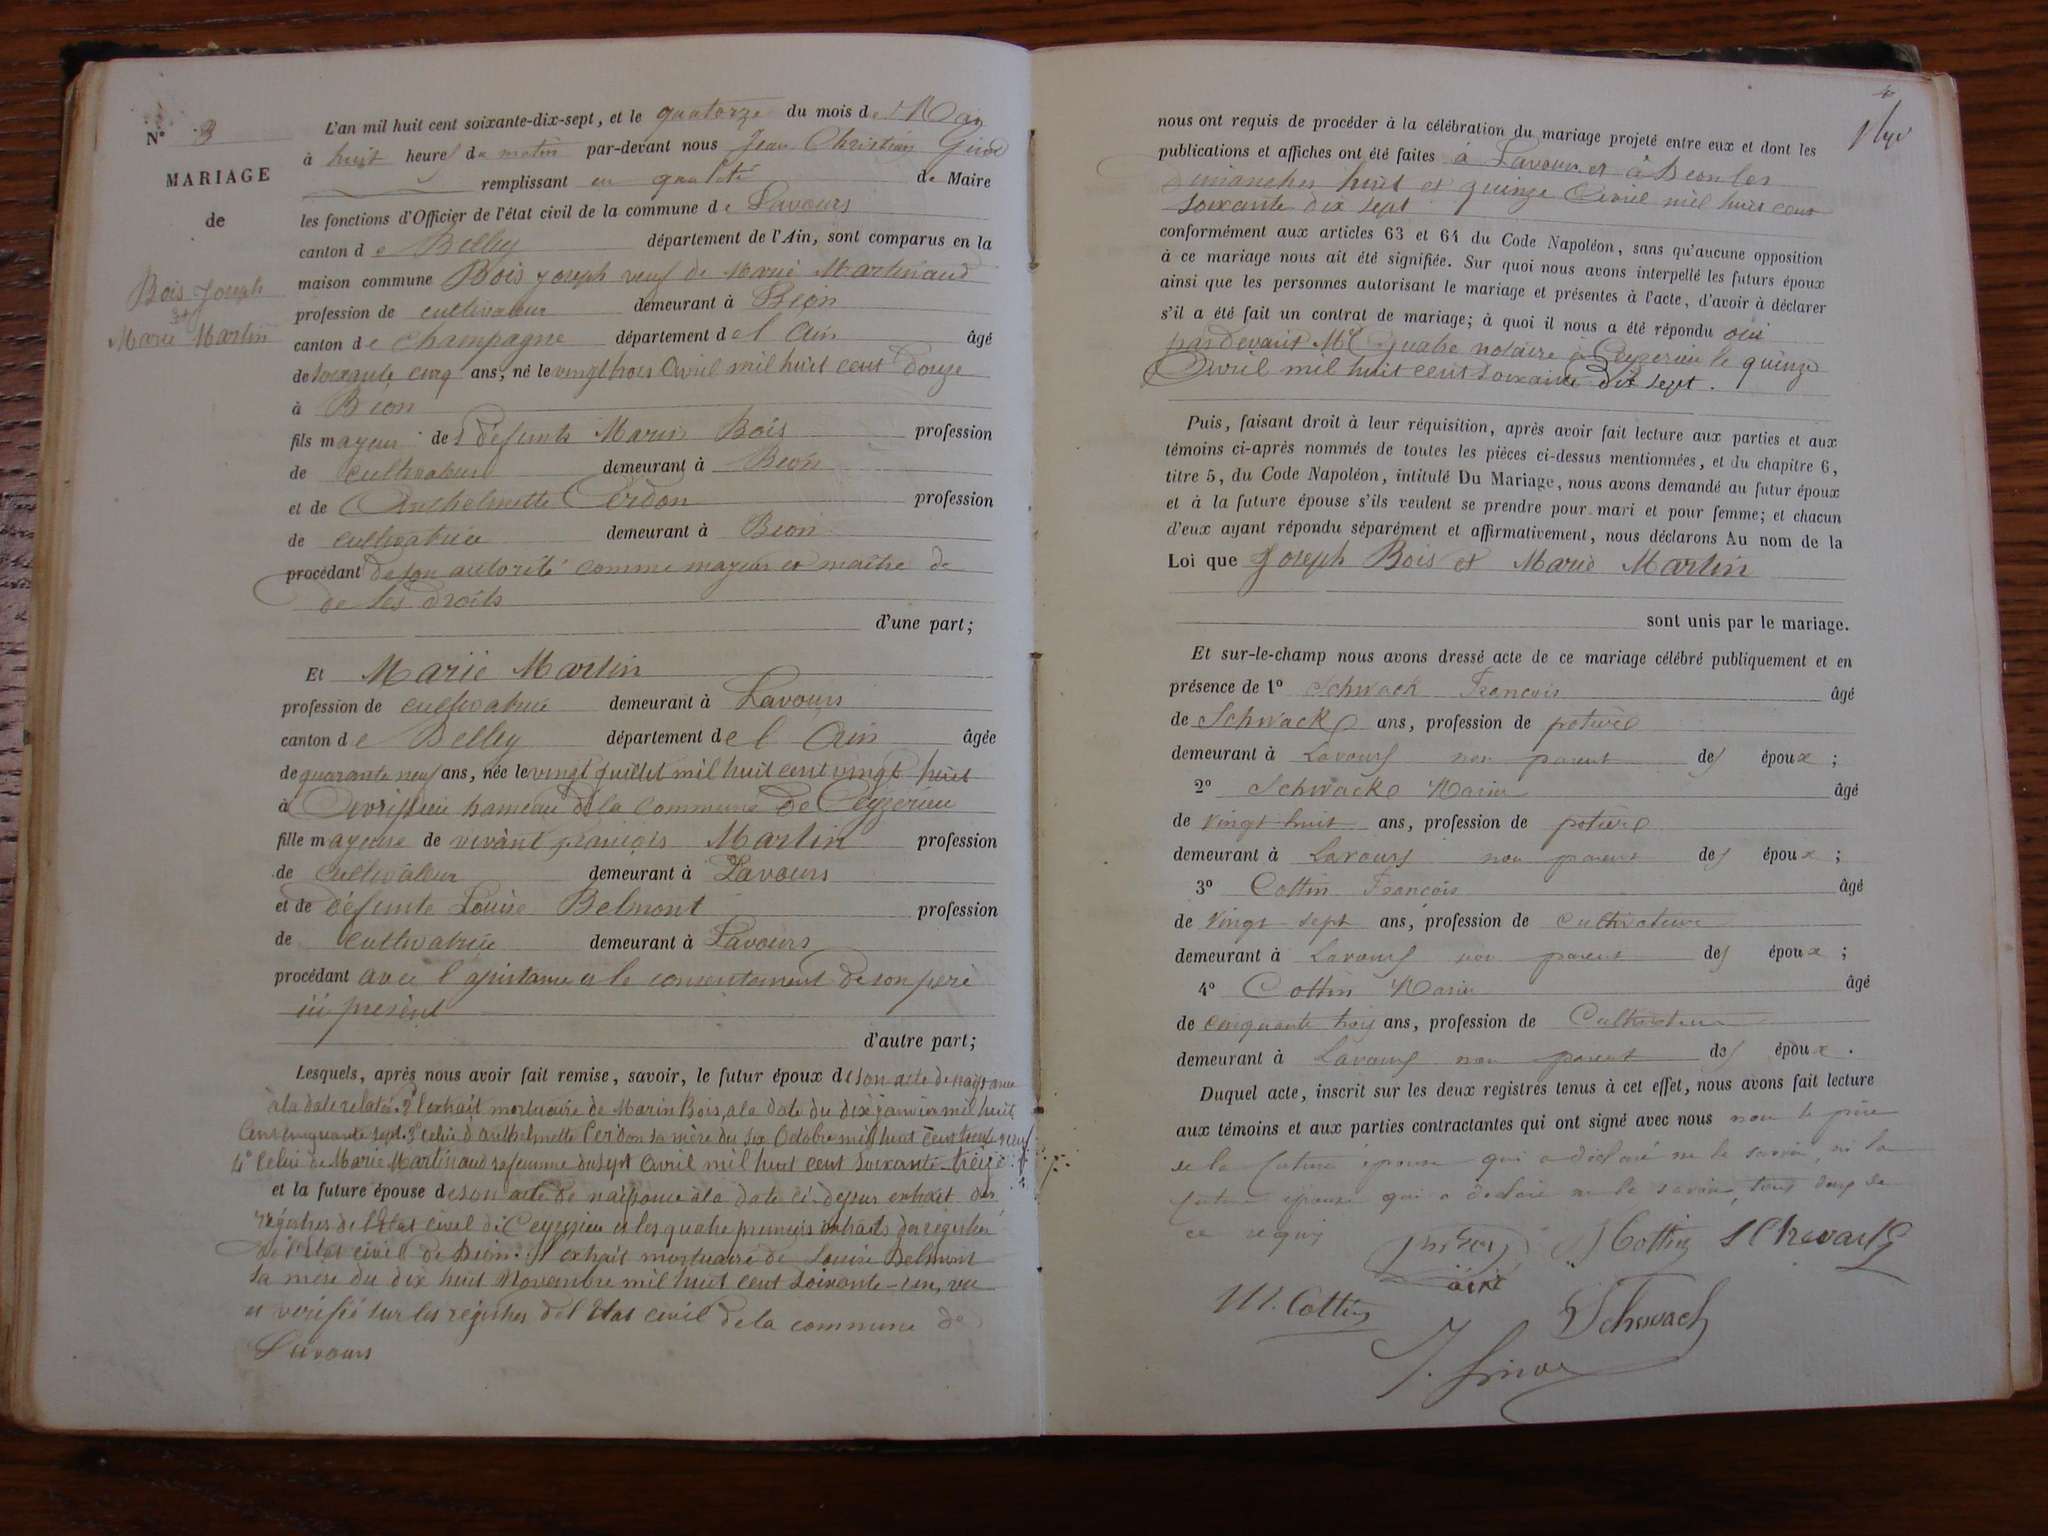 N° 3
MARIAGE
de
Bois Joseph
et
Marie Martin
L'an mil huit cent soixante-dix-sept, et le quatorze du mois de Mai
à huit heures du matin par-devant nous Jean Christian
remplissant en qualité de Maire
les fonctions d'Officier de l'état civil de la commune de Lavours
canton de Belley département de l'Ain, sont comparus en la
maison commune Bois Joseph veuf de Marie Martinand
profession de cultivateur demeurant à Béon
canton de Champagne département de l Ain âgé
de soixante cinq ans, né le vingt trois Avril mil huit cent douze
à Béon
fils mayeur de défunts Marin Bois profession
de cultivateur demeurant à Béon
et de Anthelmette Cerdon profession
de cultivatrice demeurant à Béon
procédant de son autorité comme mayeur et maître de
de ses droits
d'une part;
Et Marie Martin
profession de cultivatrice demeurant à Lavours
canton de Belley département de l Ain âgée
de quarante neuf ans, née le vingt Juillet mil huit cent vingt huit
à Avrissieu hameau de la commune de Ceyzerieu
fille mayeure de vivant françois Martin profession
de Cultivateur demeurant à Lavours
et de défunte Louise Belmont profession
de cultivatrice demeurant à Lavours
procédant avec l'assistance et le consentement de son père
ici présent
d'autre part;
Lesquels, après nous avoir fait remise, savoir, le futur époux de son acte de naissance
à la date relatée. 2° l'extrait mortuaire de Marin Bois, à la date du dix janvier mil huit
cent cinquante sept. 3° celui d'Anthelmette Cerdon sa mère du six Octobre mil huit cent trente neuf
4° Celui de Marie Martinand sa femme du sept Avril mil huit cent soixante treize
et la future épouse de son acte de naissance à la date ci-dessus extrait des
régistres de l'Etat civil de Ceyzerieu et les quatre premiers extraits des régistres
de l'Etat civil de Béon. extrait mortuaire de Louise Belmont
sa mère du dix huit Novembre mil huit cent soixante-un, vu
et vérifié sur les régistres de l'Etat civil de la commune de
Lavours
nous ont requis de procéder à la célébration du mariage projeté entre eux et dont les
publications et affiches ont été faites à Lavours et à Béon les
dimanches huit et quinze Avril mil huit cent
soixante dix sept
conformément aux articles 63 et 64 du Code Napoléon, sans qu'aucune opposition
à ce mariage nous ait été signifiée. Sur quoi nous avons interpellé les futurs époux
ainsi que les personnes autorisant le mariage et présentes à l'acte, d'avoir à déclarer
s'il a été fait un contrat de mariage; à quoi il nous a été répondu oui
pardevant Me notaire à Ceyzerieu le quinze
Avril mil huit cent soixante dix sept.
Puis, faisant droit à leur réquisition, après avoir fait lecture aux parties et aux
témoins ci-après nommés de toutes les pièces ci-dessus mentionnées, et du chapitre 6,
titre 5, du Code Napoléon, intitulé Du Mariage, nous avons demandé au futur époux
et à la future épouse s'ils veulent se prendre pour mari et pour femme; et chacun
d'eux ayant répondu séparément et affirmativement, nous déclarons Au nom de la
Loi que Joseph Bois et Marie Martin
sont unis par le mariage.
Et sur-le-champ nous avons dressé acte de ce mariage célébré publiquement et en
présence de 1° Schwack François âgé
de Schwack ans, profession de
demeurant à Lavours non parent des époux;
2° Schwack Marin âgé
de vingt huit ans, profession de
demeurant à Lavours non parent des époux;
3° Cottin François âgé
de vingt sept ans, profession de Cultivateur
demeurant à Lavours non parent des époux;
4° Cottin Marin âgé
de cinquante trois ans, profession de Cultivateur
demeurant à Lavours non parent des époux.
Duquel acte, inscrit sur les deux registres tenus à cet effet, nous avons fait lecture
aux témoins et aux parties contractantes qui ont signé avec nous non le père
de la future épouse qui a déclaré ne le savoir, ni la
future épouse qui a déclaré ne le savoir, tous deux de
ce requis
Cottin
M. Cottin
Schwach